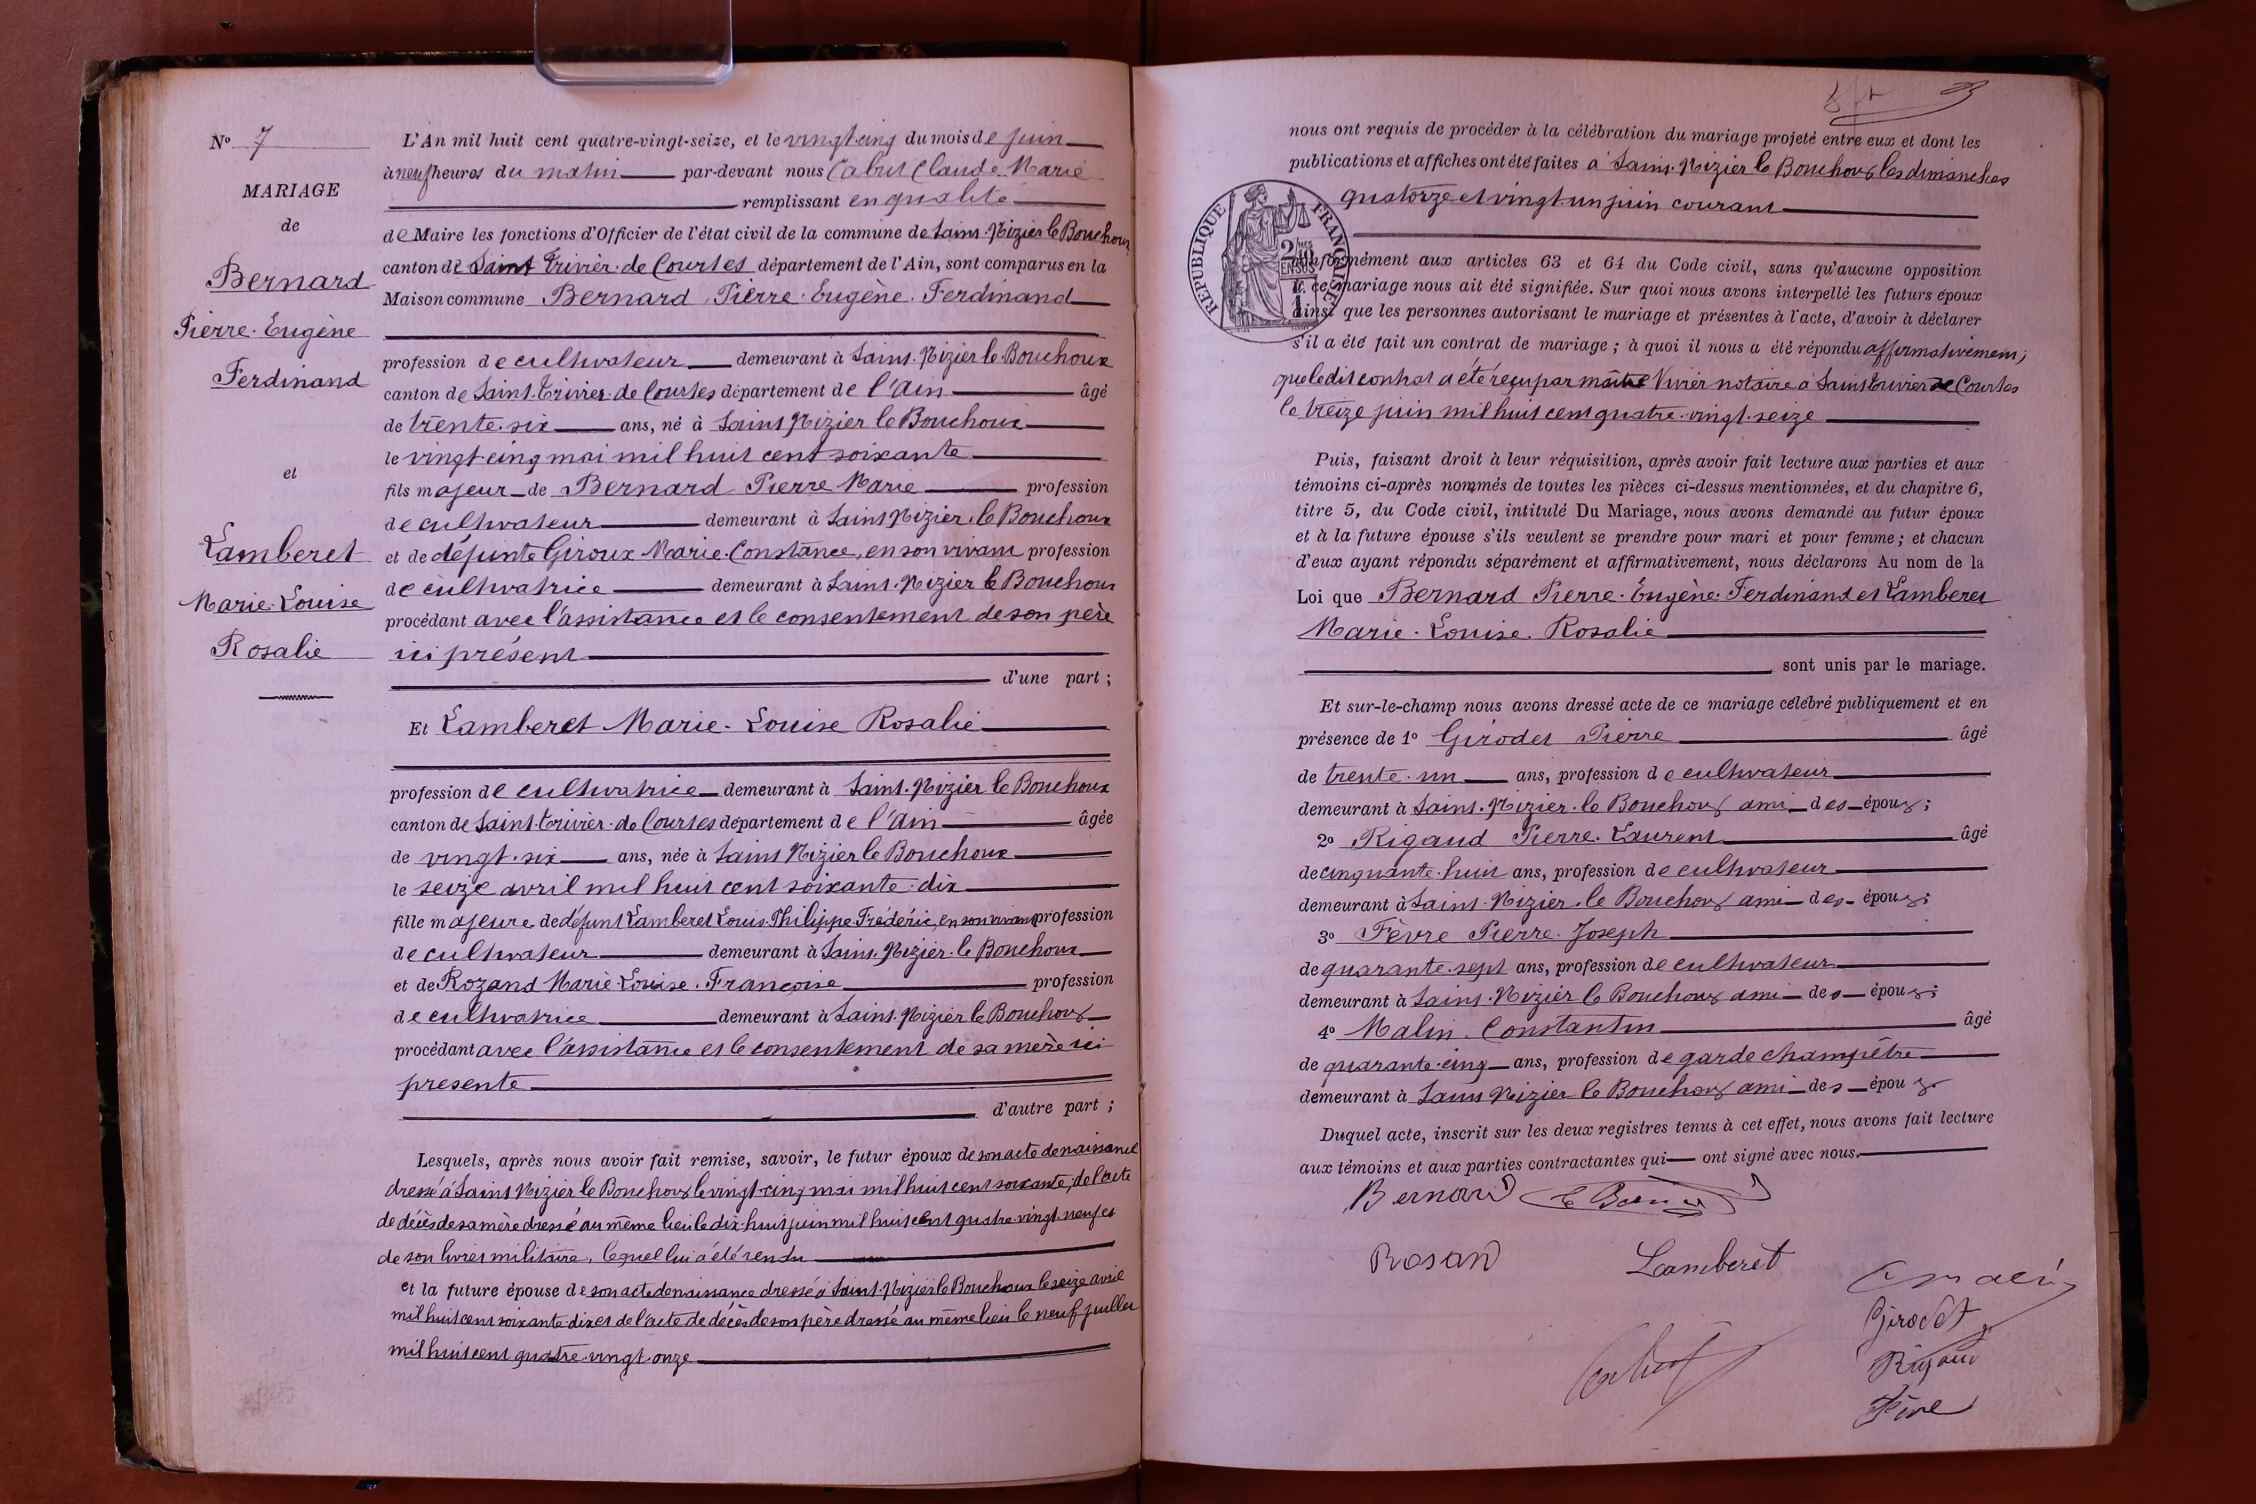 N° 7
MARIAGE
de
Bernard
Pierre-Eugène
Ferdinand
et
Lamberet
Marie-Louise
Rosalie
L'An mil huit cent quatre-vingt-seize, et le vingt-cinq du mois de juin
à neuf heures du matin par-devant nous Cabut Claude-Marie
remplissant en qualité
de Maire les fonctions d'Officier de l'état civil de la commune de Saint-Nizier le Bouchoux
canton de Saint Trivier-de Courtes département de l'Ain, sont comparus en la
Maison commune Bernard Pierre-Eugène Ferdinand
profession de cultivateur demeurant à Saint-Nizier le Bouchoux
canton de Saint-Trivier-de Courtes département de l'Ain âgé
de trente-six ans, né à Saint Nizier le Bouchoux
le vingt-cinq mai mil huit cent soixante
fils majeur de Bernard Pierre Marie profession
de cultivateur demeurant à Saint Nizier-le Bouchoux
et de défunte Giroux Marie-Constance, en son vivant profession
de cultivatrice demeurant à Saint-Nizier le Bouchoux
procédant avec l'assistance et le consentement de son père
ici présent
d'une part ;
Et Lamberet Marie-Louise Rosalie
profession de cultivatrice demeurant à Saint-Nizier le Bouchoux
canton de Saint-Trivier-de Courtes département de l'Ain âgée
de vingt-six ans, née à Saint Nizier le Bouchoux
le seize avril mil huit cent soixante-dix
fille majeure de défunt Lamberet Louis-Philippe-Frédéric, en son vivant profession
de cultivateur demeurant à Saint-Nizier-le Bouchoux
et de Rozand Marie-Louise-Françoise profession
de cultivatrice demeurant à Saint-Nizier le Bouchoux
procédant avec l'assistance et le consentement de sa mère ici
presente
d'autre part ;
Lesquels, après nous avoir fait remise, savoir, le futur époux de son acte de naissance
dressé à Saint Nizier le Bouchoux le vingt-cinq mai mil huit cent soixante, de l'acte
de décès de sa mère dressé au même lieu le dix-huit juin mil huit cent quatre-vingt-neuf et
de son livret militaire, lequel lui a été rendu
et la future épouse de son acte de naissance dressé à Saint-Nizier le Bouchoux le seize avril
mil huit cent soixante-dix et de l'acte de décès de son père dressé au même lieu le neuf juillet
mil huit cent quatre-vingt-onze
nous ont requis de procéder à la célébration du mariage projeté entre eux et dont les
publications et affiches ont été faites à Saint-Nizier le Bouchoux les dimanches
quatorze et vingt-un juin courant
RÉPUBLIQUE FRANÇAISE
conformément aux articles 63 et 64 du Code civil, sans qu'aucune opposition
à ce mariage nous ait été signifiée. Sur quoi nous avons interpellé les futurs époux
ainsi que les personnes autorisant le mariage et présentes à l'acte, d'avoir à déclarer
s'il a été fait un contrat de mariage ; à quoi il nous a été répondu affirmativement,
que le dit contrat a été reçu par maître Vivier notaire à Saint Trivier de Courtes
le treize juin mil huit cent quatre-vingt-seize
Puis, faisant droit à leur réquisition, après avoir fait lecture aux parties et aux
témoins ci-après nommés de toutes les pièces ci-dessus mentionnées, et du chapitre 6,
titre 5, du Code civil, intitulé Du Mariage, nous avons demandé au futur époux
et à la future épouse s'ils veulent se prendre pour mari et pour femme ; et chacun
d'eux ayant répondu séparément et affirmativement, nous déclarons Au nom de la
Loi que Bernard Pierre-Eugène-Ferdinand et Lamberet
Marie-Louise-Rosalie
sont unis par le mariage.
Et sur-le-champ nous avons dressé acte de ce mariage célébré publiquement et en
présence de 1° Girodet Pierre âgé
de trente-un ans, profession de cultivateur
demeurant à Saint-Nizier-le Bouchoux ami des époux ;
2° Rigaud Pierre-Laurent âgé
de cinquante-huit ans, profession de cultivateur
demeurant à Saint-Nizier-le Bouchoux ami des époux ;
3° Fèvre Pierre-Joseph
de quarante-sept ans, profession de cultivateur
demeurant à Saint-Nizier le Bouchoux ami des époux ;
4° Malin Constantin âgé
de quarante-cinq ans, profession de garde champêtre
demeurant à Saint Nizier le Bouchoux ami des époux.
Duquel acte, inscrit sur les deux registres tenus à cet effet, nous avons fait lecture
aux témoins et aux parties contractantes qui ont signé avec nous.
Bernard
Rosand Lamberet Malin
Girodet
Cabut Rigaud
Fèvre